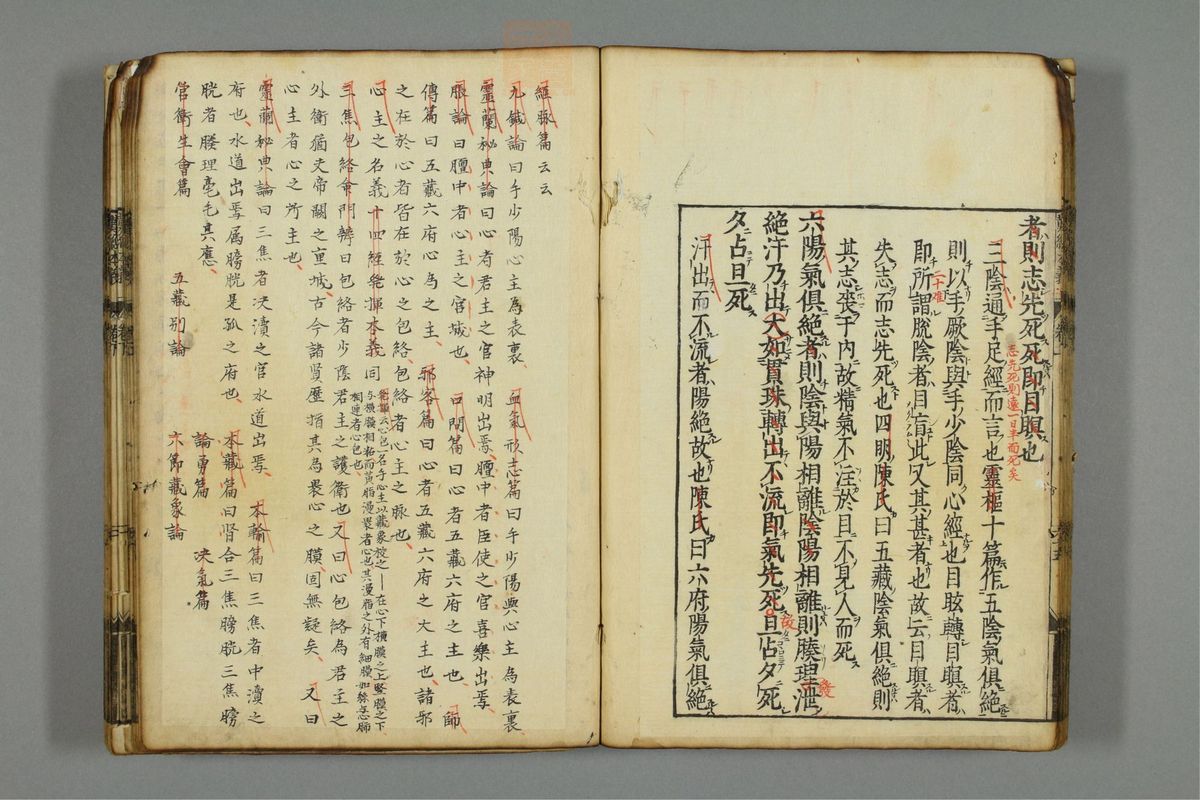 者則志先死死即目瞑也
三陰通手足經而言也靈樞十篇作五陰氣俱絕
志先死則遠一日半而死矣
則以手厥陰與手少陰同心經也目眩轉目瞑者
二十難
即所謂脫陰者目盲此又其甚者也故云目瞑者
失志而志先死也四明陳氏曰五藏陰氣俱絕則
其志喪于內故精氣不注於目不見人而死
六陽氣俱絕者則陰與陽相離陰陽相離則腠理泄
絕汗乃出大如貫珠轉出不流即氣先死旦占夕死
故
夕占旦死
汗出而不流者陽絕故也陳氏曰六府陽氣俱絕
經脉篇云云
九鍼論曰手少陽心主為表裏 血氣形志篇曰手少陽與心主為表裏
靈蘭秘典論曰心者君主之官神明出焉膻中者臣使之官喜樂出焉
脹論曰膻中者心主之宮城也 口問篇曰心者五藏六府之主也 師
傳篇曰五藏六府心為之主 邪客篇曰心者五藏六府之大主也諸邪
之在於心者皆在於心之包絡包絡者心主之脉也
心主之名義十四經發揮本義同
三焦包絡命門辨曰包絡者少陰君主之護衛也又曰心包絡為君主之
外衛猶夫帝闕之重城古今諸賢歷指其為裹心之膜固無疑矣 又曰
心主者心之所主也
靈蘭秘典論曰三焦者決瀆之官水道出焉 本輸篇曰三焦者中瀆之
府也水道出焉属膀胱是孤之府也 本藏篇曰腎合三焦膀胱三焦膀
胱者腠理毫毛其應 論勇篇 決氣篇
營衛生會篇 五藏別論 六節藏象論